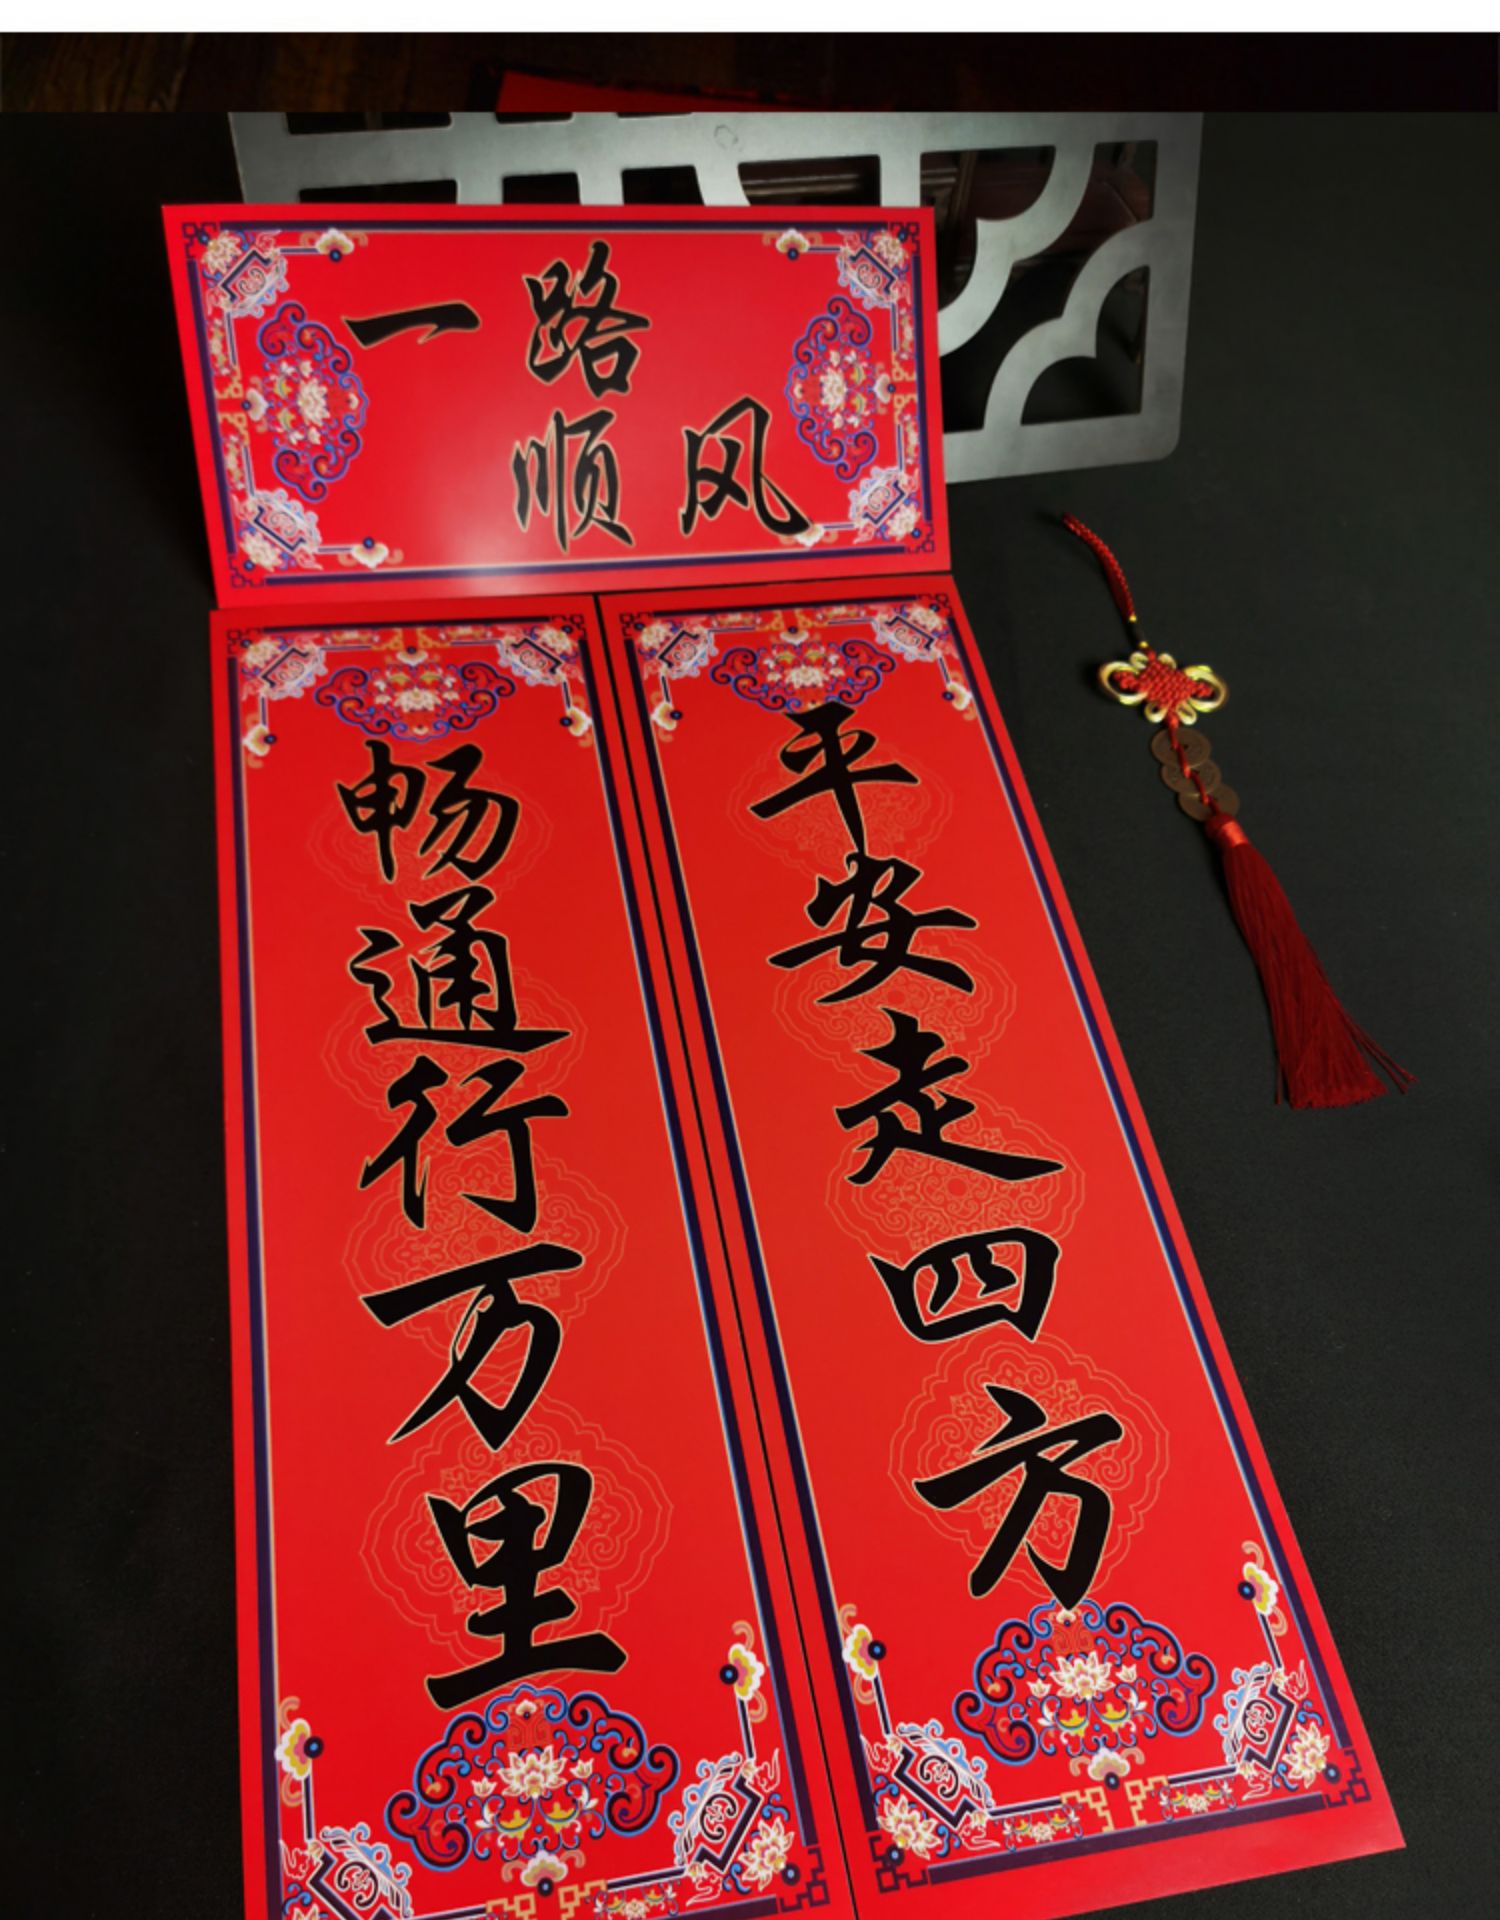 一路
顺风
畅通行万里
平安走四方